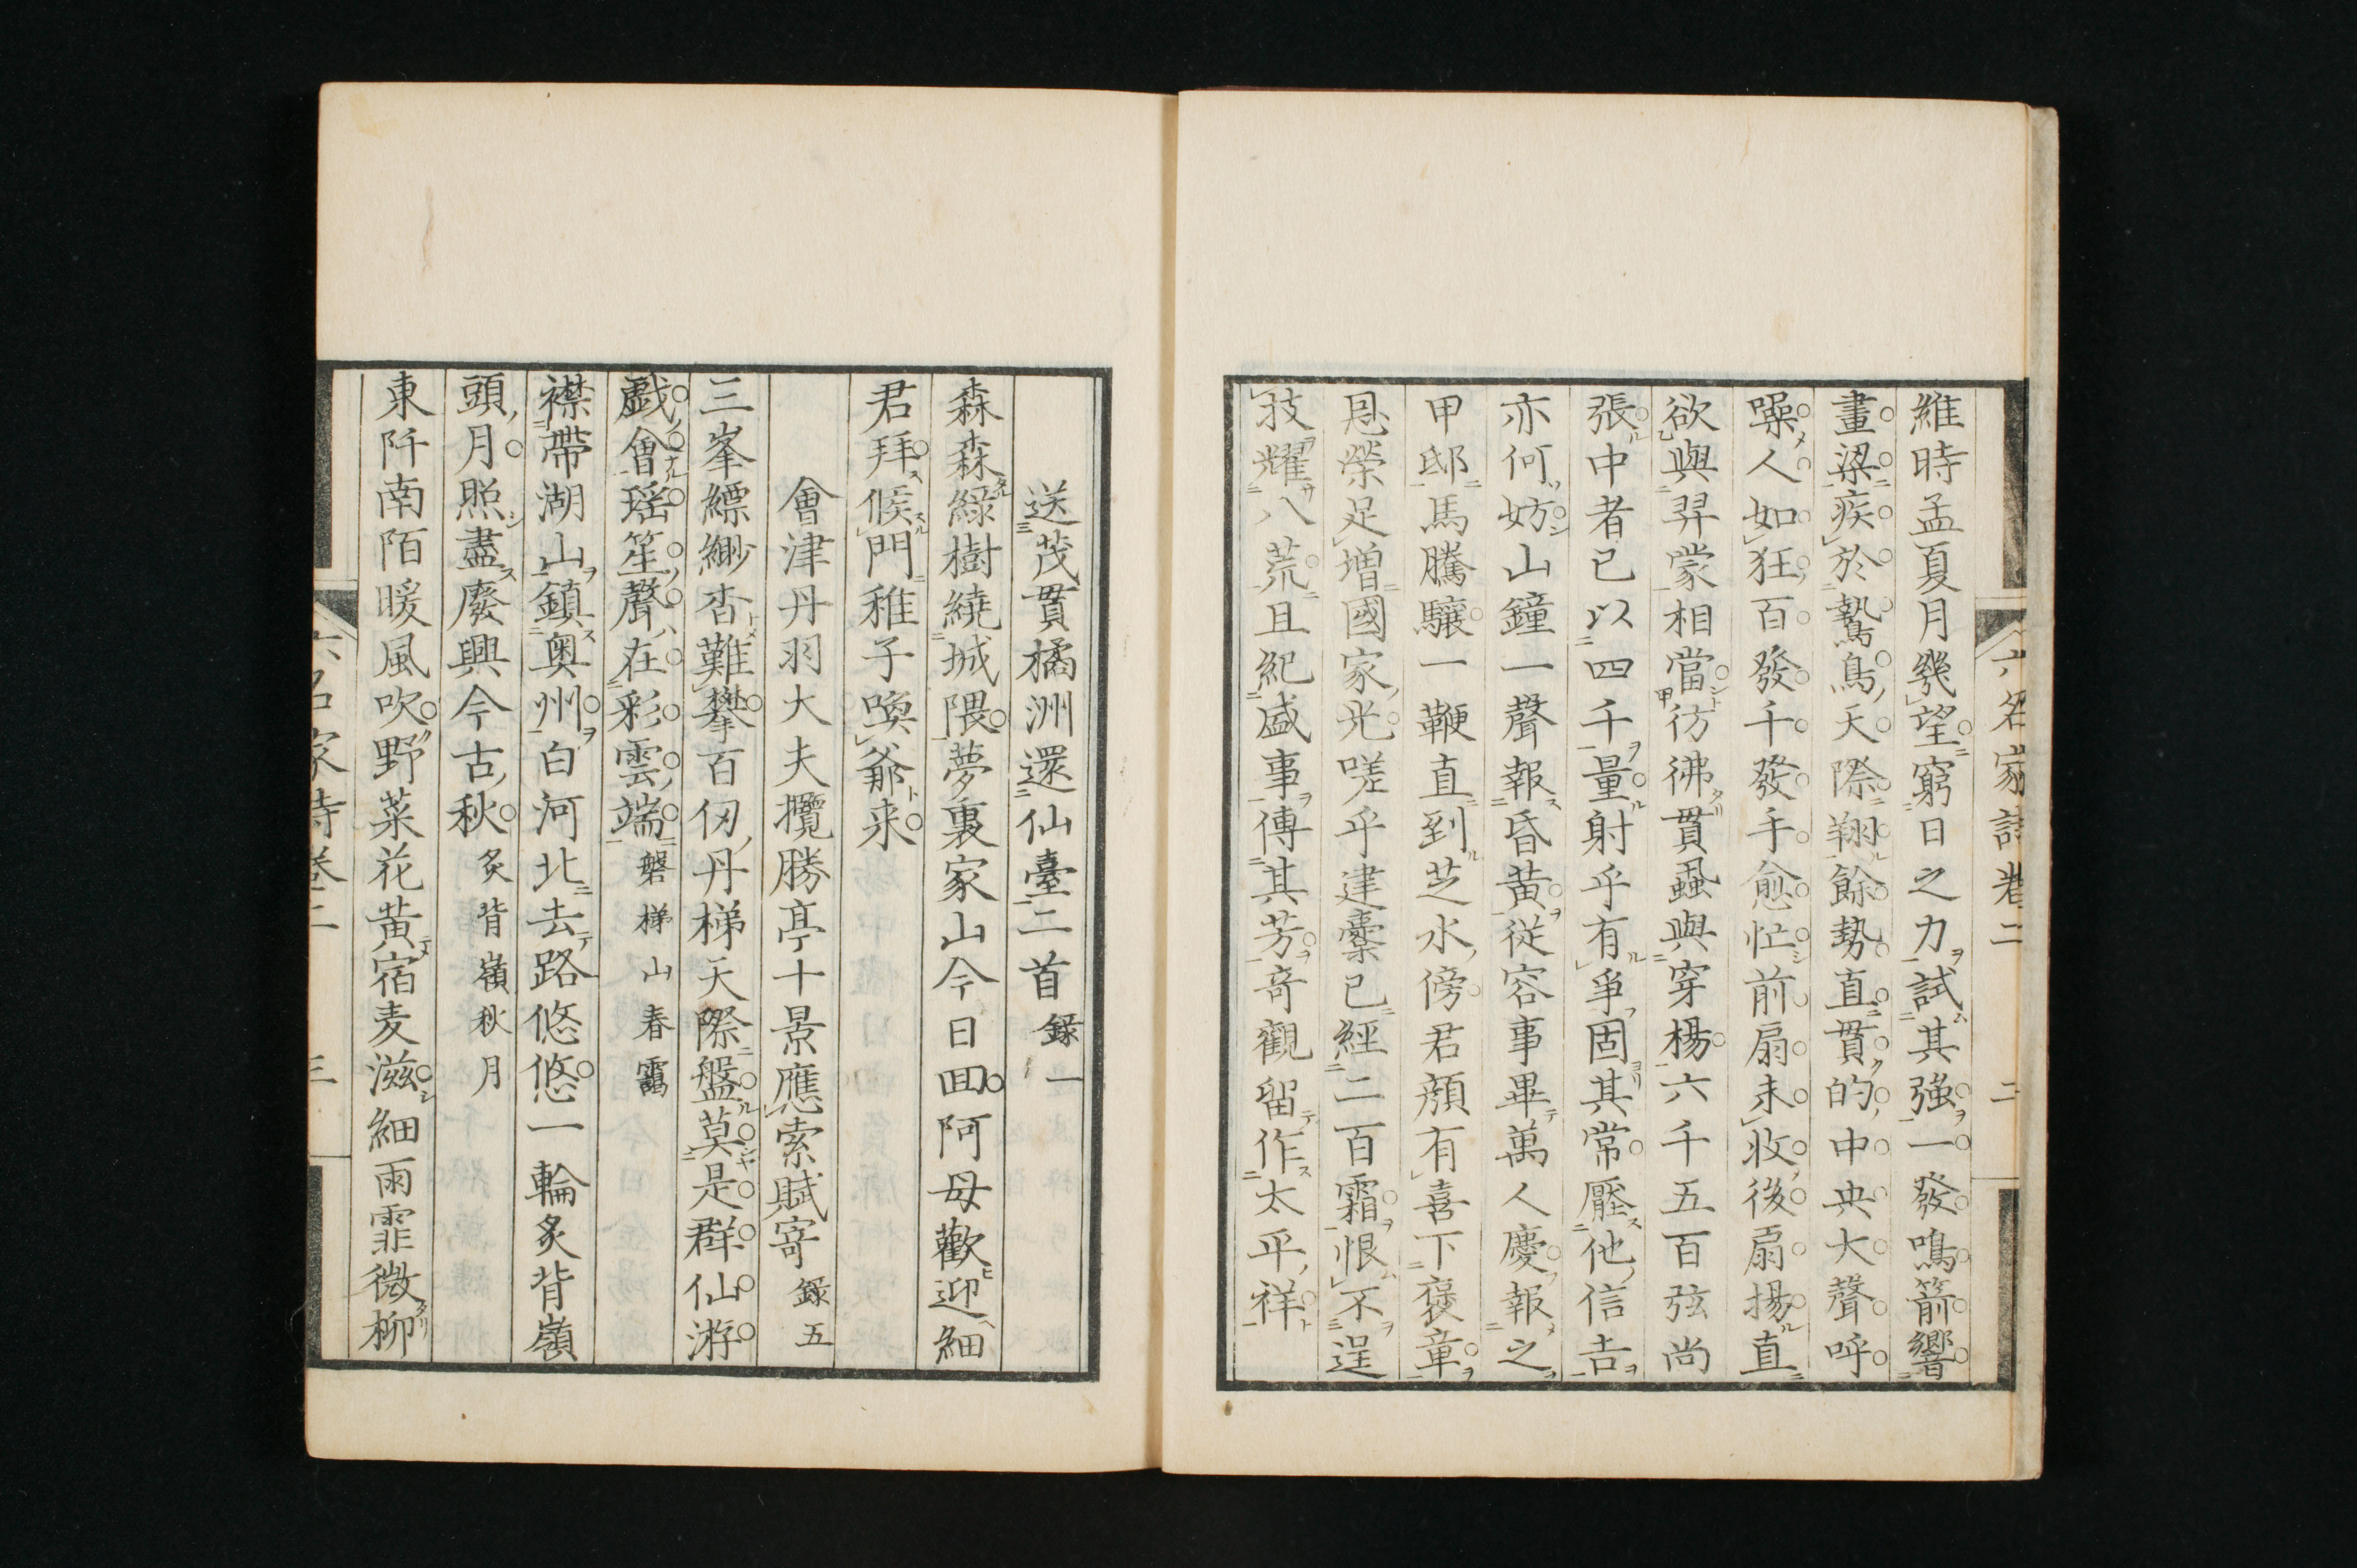 六名家詩卷二 二
維時孟夏月幾望窮日之力試其強一發鳴箭響
畫梁疾於鷙鳥天際翔餘勢直貫的中央大聲呼
噪人如狂百發千發手愈忙前扇未收後扇揚直
欲與羿蒙相當彷彿貫蝨與穿楊六千五百弦尚
張中者已以四千量射乎有爭固其常壓他信吉
亦何妨山鐘一聲報昏黄從容事畢萬人慶報之
甲邸馬騰驤一鞭直到芝水傍君顔有喜下褒章
恩榮足增國家光嗟乎建櫜已經二百霜恨不逞
技耀八荒且紀盛事傳其芳奇觀留作太平祥
送茂貫橘洲還仙臺二首 録一
森森緑樹繞城隈夢裏家山今日回阿母歡迎細
君拜候門稚子喚爺来
會津丹羽大夫攬勝亭十景應索賦寄 録五
三峯縹緲杳難攀百仞丹梯天際盤莫是群仙游
戲會瑶笙聲在彩雲端 磐梯山春靄
襟帶湖山鎮奥州白河北去路悠悠一輪炙背嶺
頭月照盡廢興今古秋 炙背嶺秋月
東阡南陌暖風吹野菜花黄宿麦滋細雨霏微柳
六名家詩卷二 三